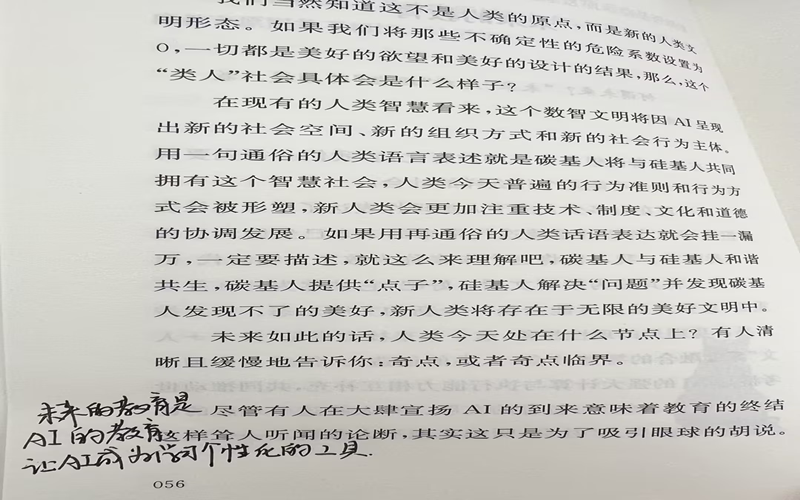 我们当然知道这不是人类的原点，而是新的人类文
明形态。如果我们将那些不确定性的危险系数设置为
0，一切都是美好的欲望和美好的设计的结果，那么，这个
“类人”社会具体会是什么样子？
在现有的人类智慧看来，这个数智文明将因 AI 呈现
出新的社会空间、新的组织方式和新的社会行为主体。
用一句通俗的人类语言表述就是碳基人将与硅基人共同
拥有这个智慧社会，人类今天普遍的行为准则和行为方
式会被形塑，新人类会更加注重技术、制度、文化和道德
的协调发展。如果用再通俗的人类话语表达就会挂一漏
万，一定要描述，就这么来理解吧，碳基人与硅基人和谐
共生，碳基人提供“点子”，硅基人解决“问题”并发现碳基
人发现不了的美好，新人类将存在于无限的美好文明中。
未来如此的话，人类今天处在什么节点上？有人清
晰且缓慢地告诉你：奇点，或者奇点临界。
尽管有人在大肆宣扬 AI 的到来意味着教育的终结
这样耸人听闻的论断，其实这只是为了吸引眼球的胡说。
未来的教育是
AI 的教育
让AI成为学习个性化的工具.
056